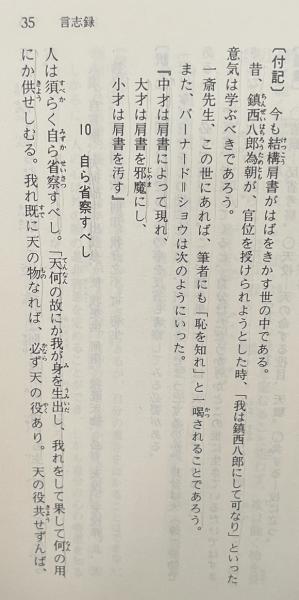 35 言志録
〔付記〕 今も結構肩書がはばをきかす世の中である。
昔、鎮西八郎為朝が、官位を授けられようとした時、「我は鎮西八郎にして可なり」といった
意気は学ぶべきであろう。
一斎先生、この世にあれば、筆者にも「恥を知れ」と一喝されることであろう。
また、バーナード＝ショウは次のようにいった。
『中才は肩書によって現れ、
大才は肩書を邪魔にし、
小才は肩書を汚す』
10 自ら省察すべし
人は須らく自ら省察すべし。「天何の故にか我が身を生出し、我れをして果して何の用
にか供せしむる。我れ既に天の物なれば、必ず天の役あり。天の役共せずんば、